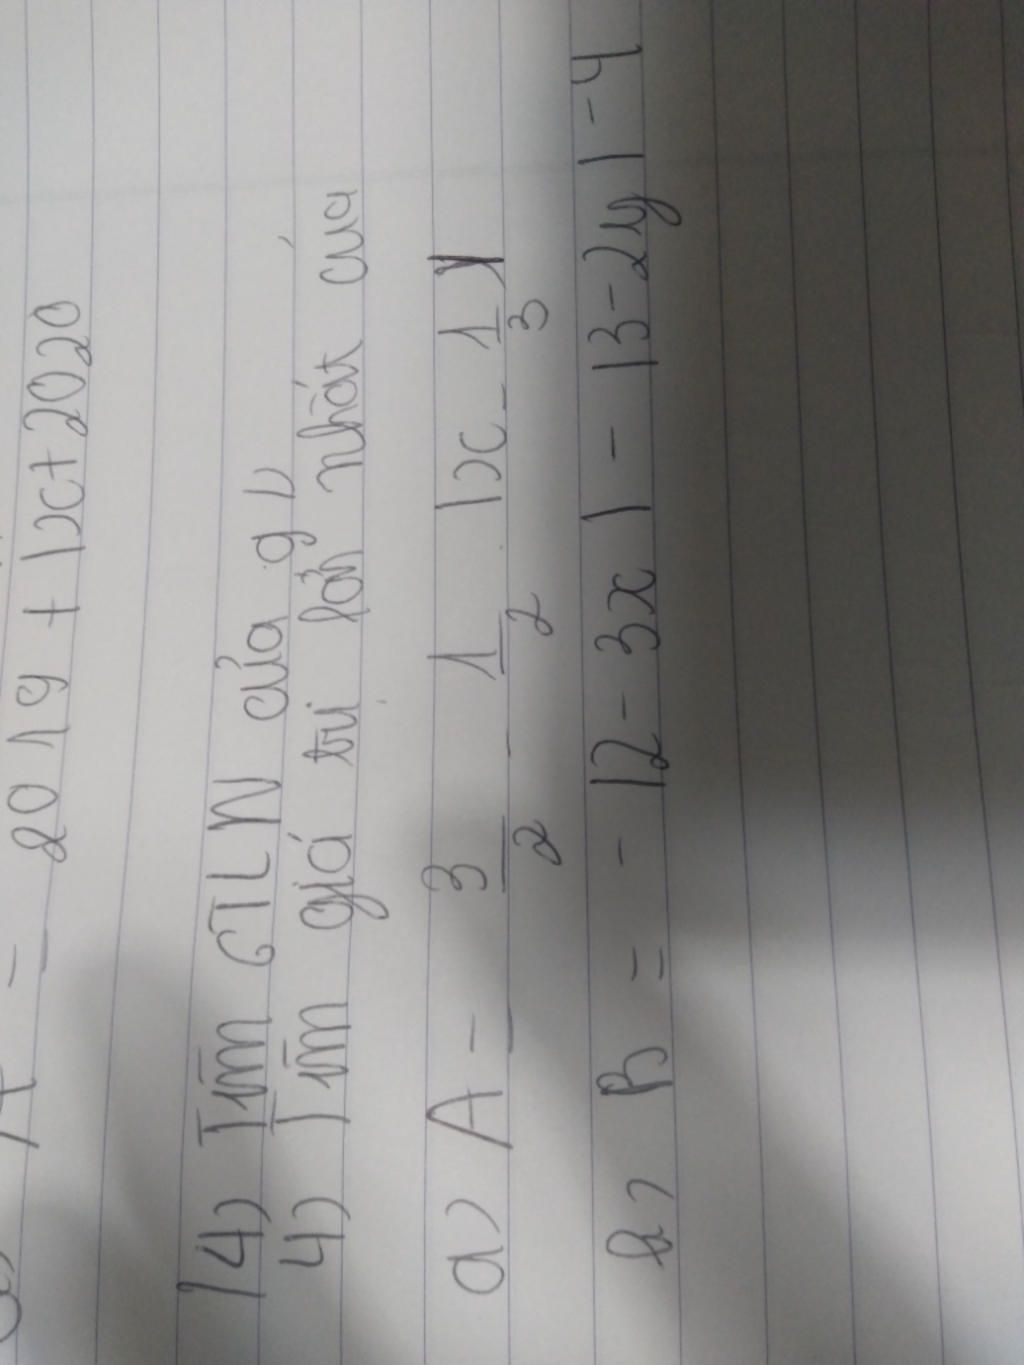 A = 2019 + |x + 2020
14) Tìm GTLN của
4) Tìm giá trị lớn nhất của
a) A = 3/2 - 1/2 . |x - 1/3|
b) B = - |2 - 3x| - |3 - 2y| - 4